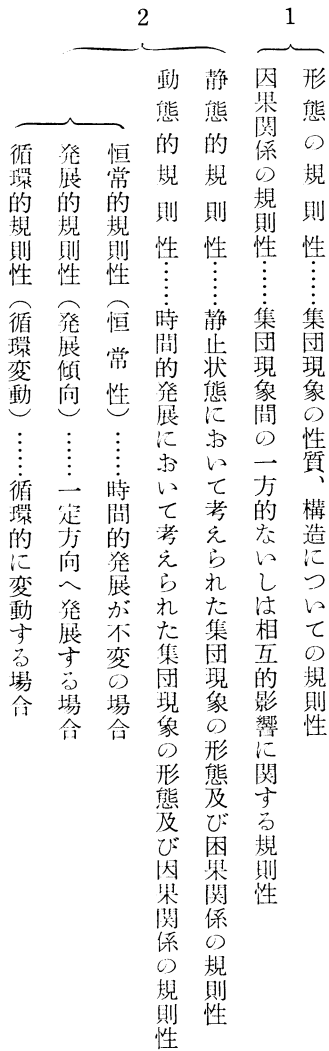 1
形態の規則性……集団現象の性質、構造についての規則性
因果関係の規則性……集団現象間の一方的ないしは相互的影響に関する規則性
2
静態的規則性……静止状態において考えられた集団現象の形態及び困果関係の規則性
動態的規則性……時間的発展において考えられた集団現象の形態及び因果関係の規則性
恒常的規則性(恒常性)……時間的発展が不変の場合
発展的規則性(発展傾向)……一定方向へ発展する場合
循環的規則性(循環変動)……循環的に変動する場合